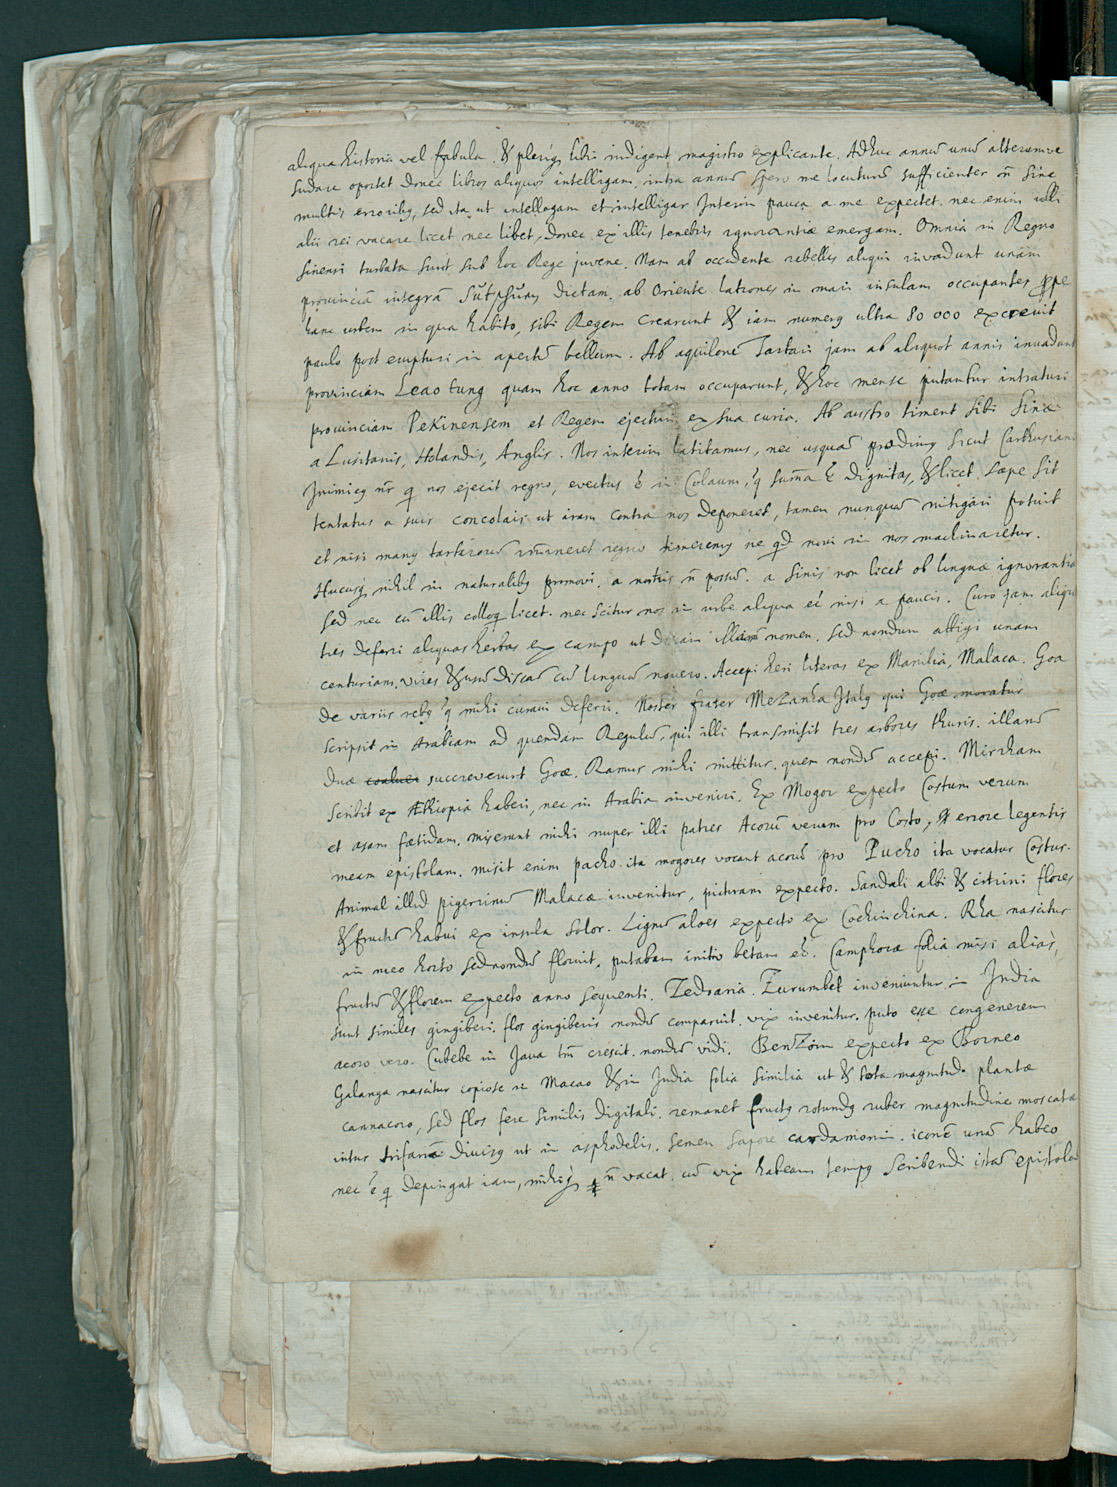 aliqua historia vel fabula. & pleriq₃ libri indigent magistro explicante. Adhuc annū unū alterumve
sudare oportet donec libros aliquos intelligam, intra annū spero me locuturū sufficienter n̄ sine
multis erroribꝫ, sed ita ut intelligam et intelligar Interim pauca a me expectet. nec enim ulli
alii rei vacare licet nec libet, donec ex illis tenebris ignorantiæ emergam. Omnia in Regno
sinensi turbata sunt sub hoc Rege juvene. Nam ab occidente rebelles aliqui invadunt unam
provinciā integrā dictam. ab Oriente latrones in mari insulam occupantes ꝓpe
hanc urbem in qua habito, sibi Regem crearunt & iam numerꝫ ultra 80 000 excrevit
paulo post erupturi in apertū bellum. Ab aquilone Tartari jam ab aliquot annis invadunt
provinciam Leao tung quam hoc anno totam occuparunt, & hoc mense putantur intraturi
provinciam Pekinensem et Regem ejecturi ex sua curia. Ab austro timent sibi Sinæ
a Lusitanis, Holandis, Anglis. Nos interim latitamus, nec usquā prodimꝫ sicut Carthusiani
Inimicꝫ nr̄ q nos ejecit regno, evectus ē in Colaum, q̄ sum̄a ē dignitas, & licet sæpe sit
tentatus a suis concolais ut iram contra nos deponeret, tamen nunquā mitigari potuit
et nisi manꝫ tartarorū im̄ineret regno timeremꝫ ne qd novi in nos machinaretur.
Hucusq₃ nihil in naturalibꝫ promovi. a nostris n̄ possū. a Sinis non licet ob linguæ ignorantiā
sed nec cū illis colloq licet. nec scitur nos in urbe aliqua eē nisi a paucis. Curo jam aliqu
tres deferri aliquas herbas ex campo ut nomen. sed nondum attigi unam
centuriam, vires & usū discā cū linguā novero. Accepi heri literas ex Manilia, Malaca. Goa
de variis rebꝫ q̄ mihi curavi deferri. Noster frater Mezanha Italꝫ qui Goæ moratur
scripsit in Arabiam ad quendam Regulū, qui illi transmisit tres arbores thuris. illarū
duæ succreverunt Goæ. Ramus mihi mittitur. quem nondū accepi. Mirrham
scribit ex Æthiopia haberi, nec in Arabia inveniri. Ex Mogor expecto Costum verum
et asam fœtidam. miserunt mihi nuper illi patres Acorū verum pro Costo, errore legentis
meam epistolam. misit enim pacho ita mogores vocant acorū pro Pucho ita vocatur Costus.
Animal illud pigerrimū Malacæ invenitur, picturam expecto. Sandali albi & citrini flores
& fructū habui ex insula Solor. Lignū aloes expecto ex Cochinchina. Rha nascitur
in meo horto sed nondū floruit. putabam initio betam eē. Camphoræ folia misi aliàs,
fructū & florem expecto anno sequenti. Zedoaria. Zurumbet inveniuntur in India
sunt similes gingiberi. flos gingiberis nondū comparuit. vix invenitur. puto esse congenerem
acoro vero. Cubebe in Java tm̄ crescit. nondū vidi. Benzoin expecto ex Borneo
Galanga nascitur copiose in Macao & in India folia similia ut & tota magnitudo plantæ
cannacoro, sed flos fere similis digitali. remanet fructꝫ rotundꝫ ruber magnitudine moscatæ
intus trifariā divisꝫ ut in asphodelis. semen sapore cardamomi. iconē unā habeo
nec ē q depingat iam, mihiq₃ n̄ vacat. cū vix habeam tempꝫ scribendi istā epistolā